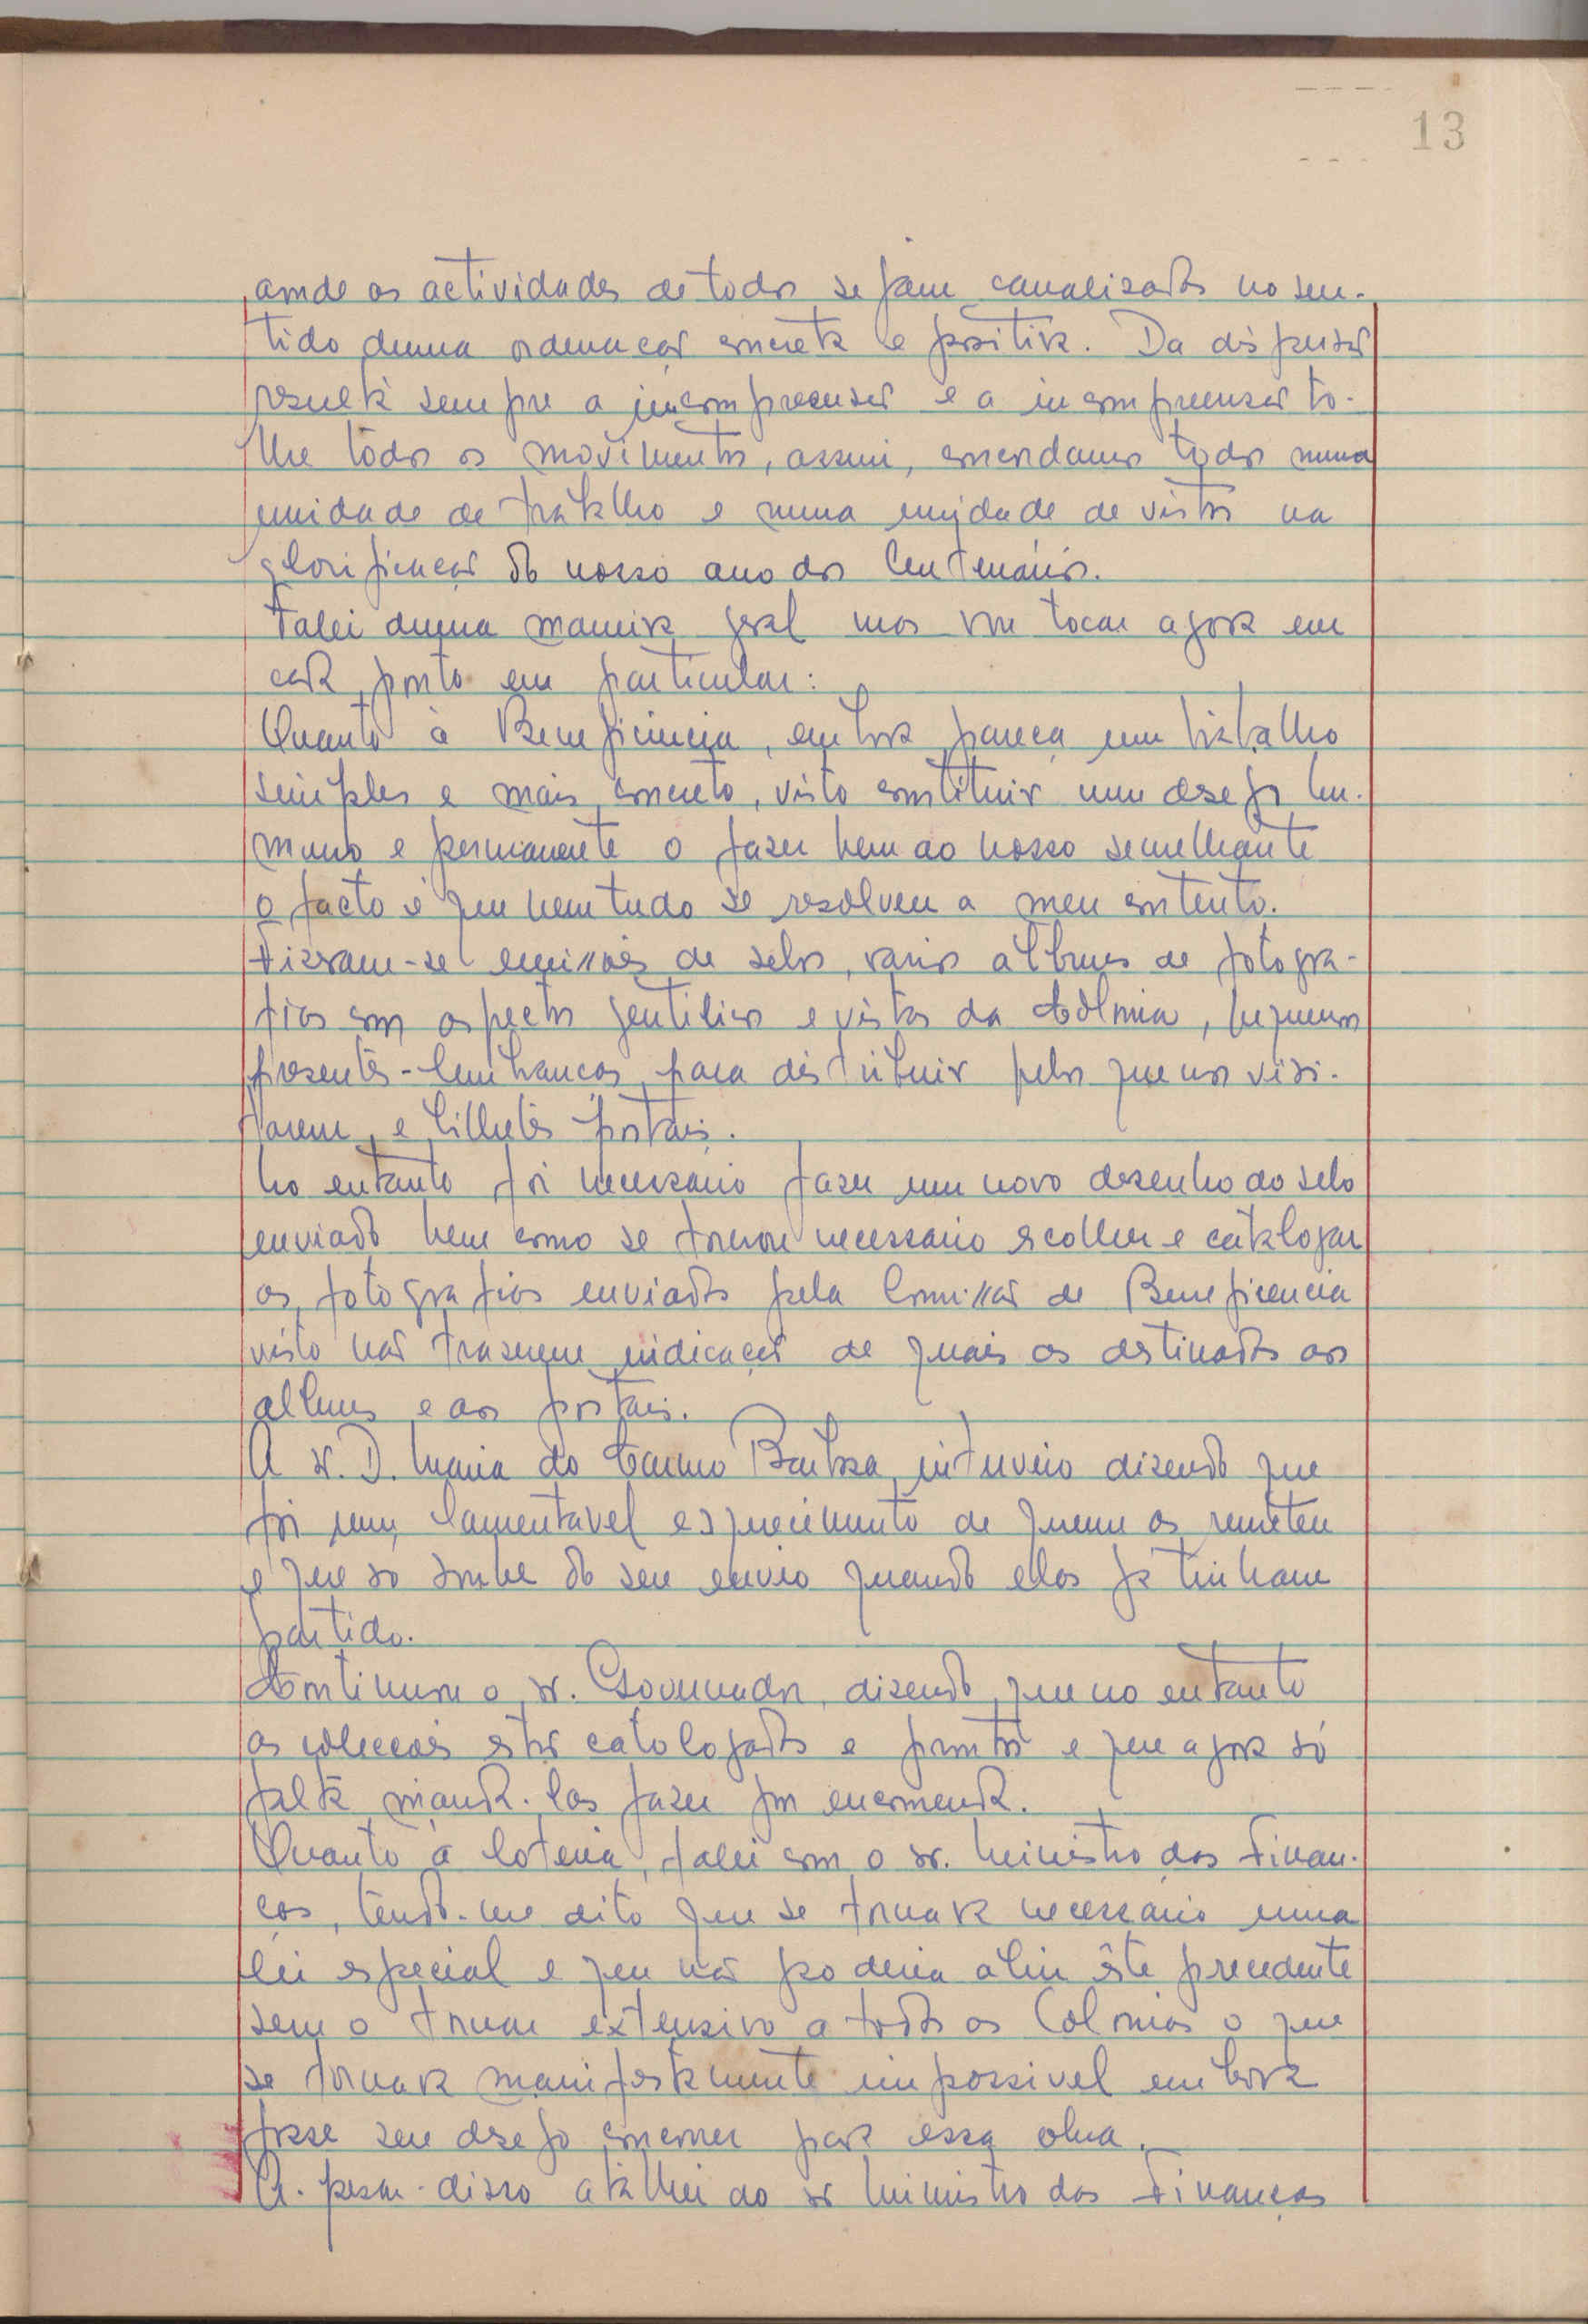 13
aonde as actividades de todos sejam canalizadas no sen-
tido duma ordenação concreta e positiva. Da dispersão
resulta sempre a incompreensão e a incompreensão to-
lhe todos os movimentos, assim, concordamos todos numa
unidade de trabalho e numa unidade de vistas na
glorificação do nosso ano dos Centenários.
Falei duma maneira geral mas vou tocar agora em
cada ponto em particular:
Quanto à Beneficiencia, embora pareça um trabalho
simples e mais concreto, visto constituir um desejo hu-
mano e permanente o fazer bem ao nosso semelhante
o facto é que nem tudo se resolveu a meu contento.
Fizeram-se emissões de selos, varios albuns de fotogra-
fias com aspectos gentilicos e vistas da Colonia, pequenos
presentes-lembranças para distribuir pelos que nos visi-
tarem, e bilhetes postais.
No entanto foi necessário fazer um novo desenho do selo
enviado bem como se tornou necessario escolher e catalogar
as fotografias enviadas pela Comissão de Beneficencia
visto não trazerem indicação de quais as destinadas aos
albuns e aos postais.
A sr. D. Maria do Carmo Barbosa interveio dizendo que
foi um lamentavel esquecimento de quem as remeteu
e que só soube do seu envio quando elas já tinham
partido.
Continuou o sr. Governador dizendo que no entanto
as colecções estão catologadas e prontas e que agora só
falta manda-las fazer por encomenda.
Quanto à lotaria, falei com o sr. Ministro das Finan-
ças, tendo-me dito que se tornava necessário uma
lei especial e que não poderia abrir êste precedente
sem o tornar extensivo a todas as Colonias o que
se tornava manifestamente impossivel embora
fosse seu desejo concorrer para essa obra.
A-pesar-disso atalhei ao sr Ministro das Finanças